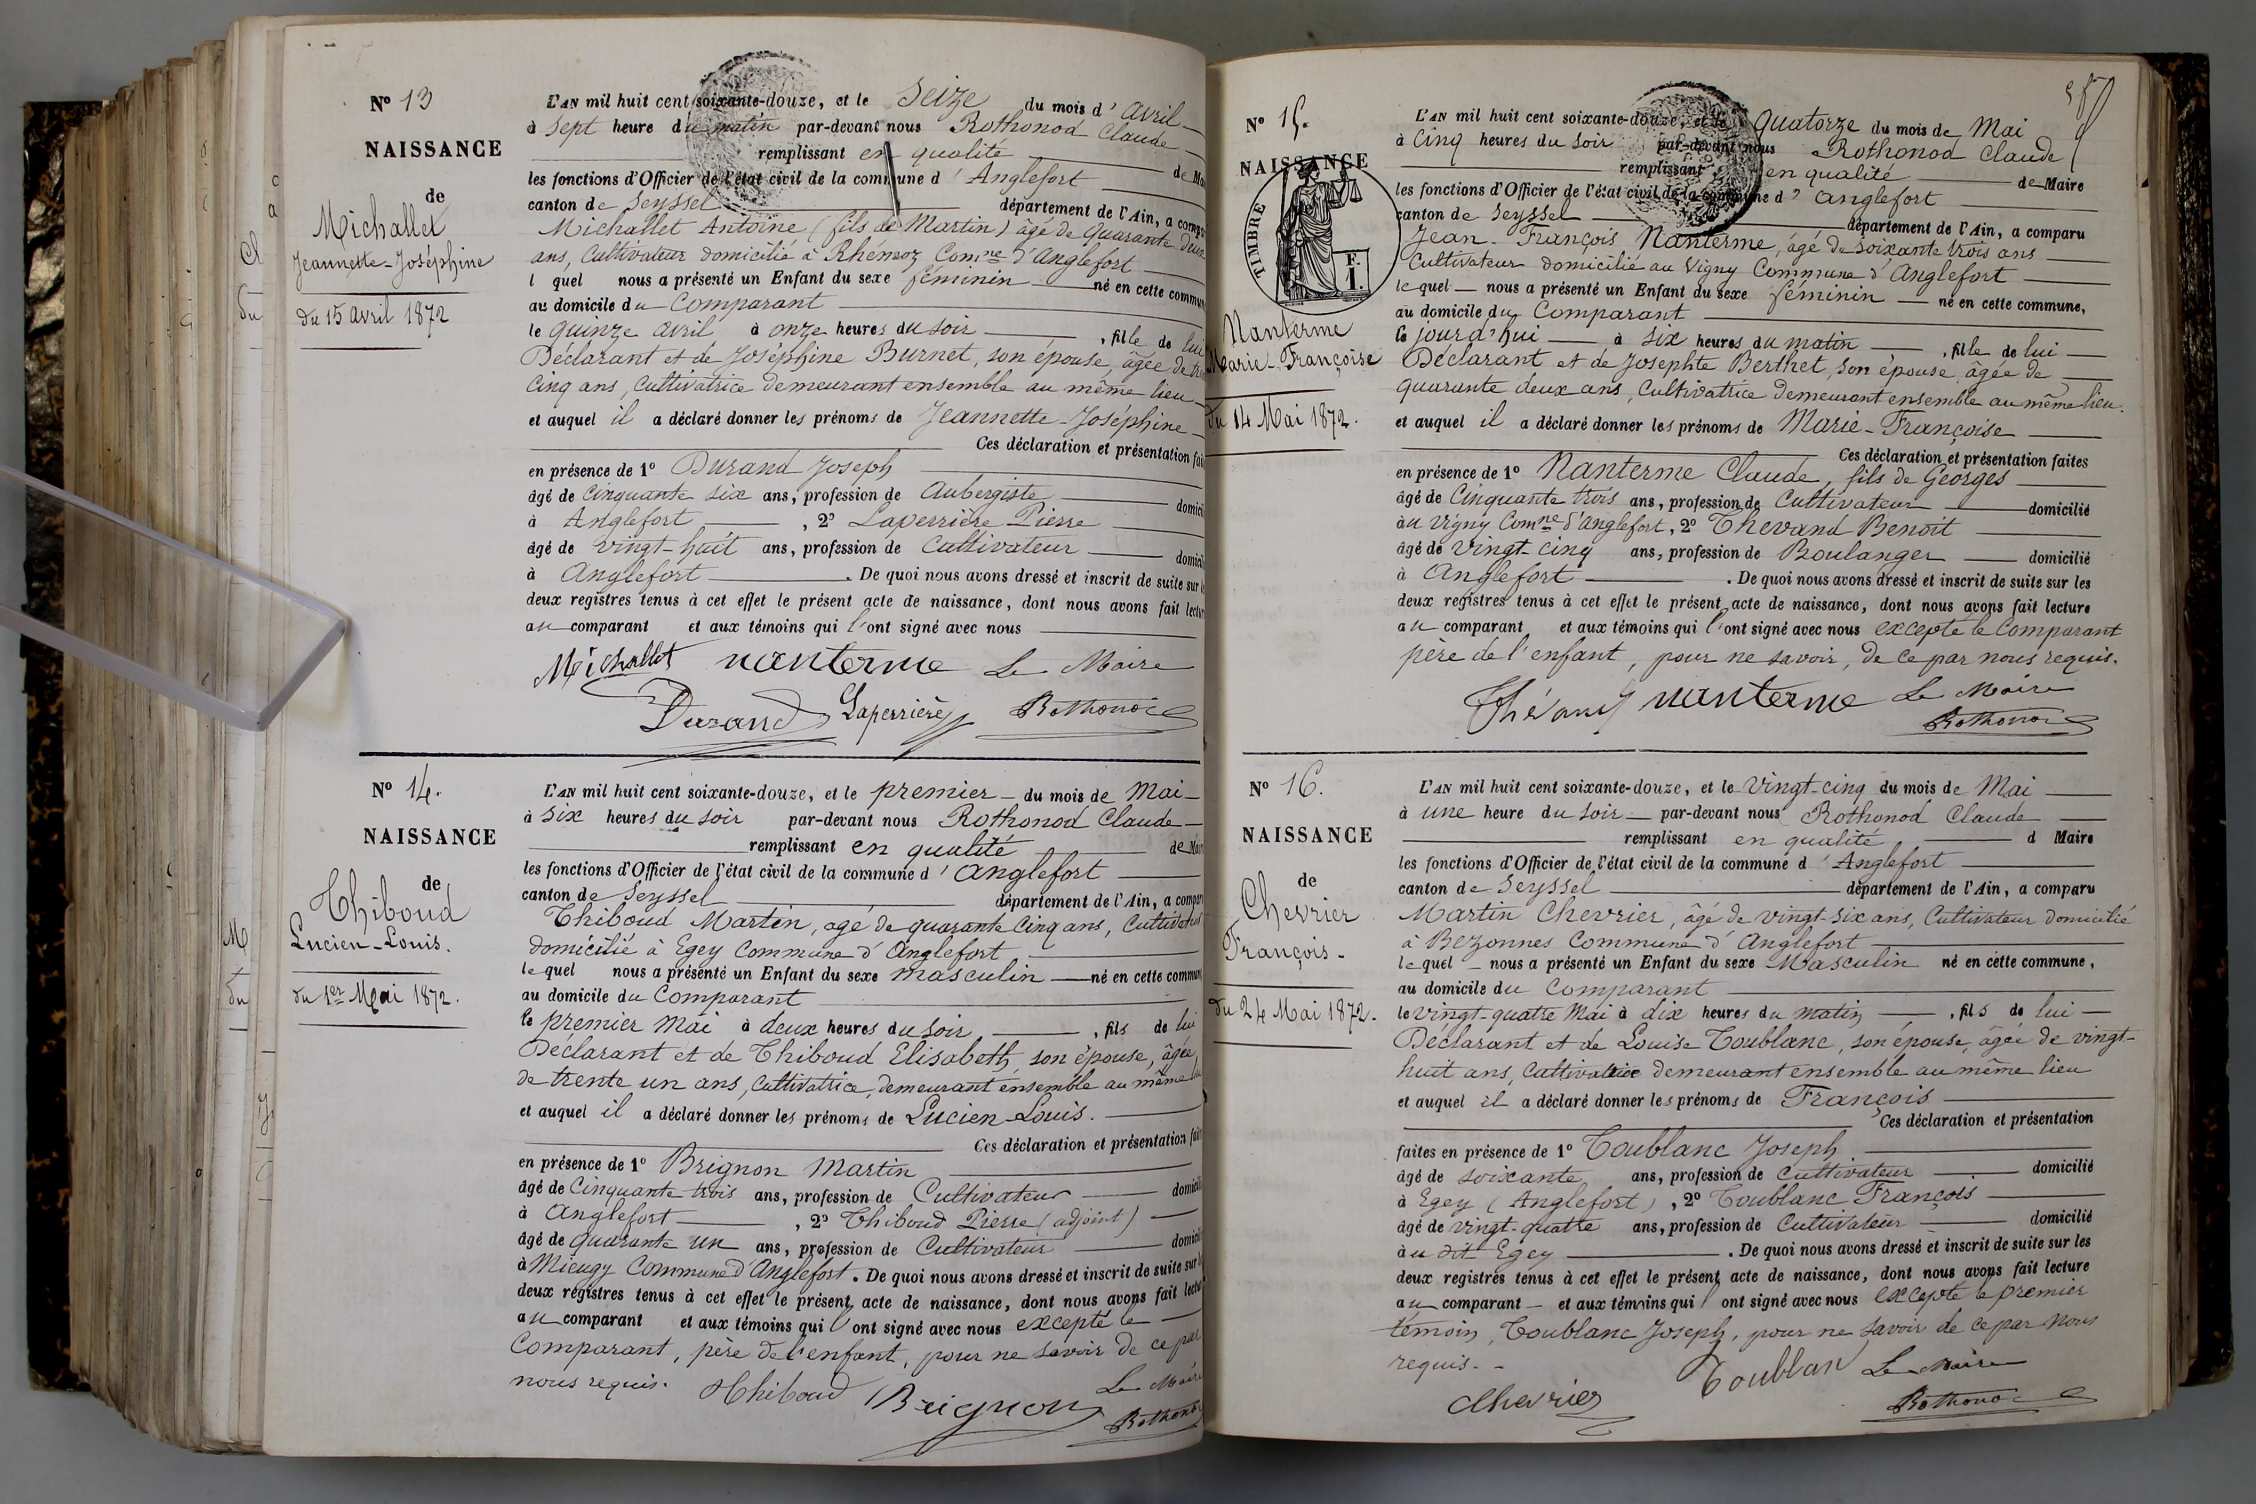 N° 13
NAISSANCE
de
Michallet
Jeannette-Joséphine
du 15 avril 1872
L'AN mil huit cent soixante-douze, et le Seize du mois d'avril
à Sept heure du matin par-devant nous Rothonod Claude
remplissant en qualité de
les fonctions d'Officier de l'état civil de la commune d'Anglefort
canton de Seyssel département de l'Ain, a
Michallet Antoine (fils de Martin) âgé de quarante deux
ans, Cultivateur domicilié à Rhémoz Comne d'Anglefort
l quel nous a présenté un Enfant du sexe féminin né en cette
au domicile du Comparant
le quinze avril à onze heures du soir, fille de lui
Déclarant et de Joséphine Burnet, son épouse, âgée de
cinq ans, Cultivatrice demeurant ensemble au même lieu
et auquel il a déclaré donner les prénoms de Jeannette-Joséphine
Ces déclaration et présentation
en présence de 1° Durand Joseph
âgé de cinquante six ans, profession de Aubergiste
à Anglefort, 2° Laperrière Pierre
âgé de vingt-huit ans, profession de Cultivateur
à Anglefort. De quoi nous avons dressé et inscrit de suite sur
deux registres tenus à cet effet le présent acte de naissance, dont nous avons fait
au comparant et aux témoins qui l'ont signé avec nous
Michallet nanterme Le Maire
Durand Laperrière Rothonod
N° 14.
NAISSANCE
de
Thiboud
Lucien-Louis.
du 1er Mai 1872.
L'AN mil huit cent soixante-douze, et le premier du mois de Mai
à six heures du soir par-devant nous Rothonod Claude
remplissant en qualité de
les fonctions d'Officier de l'état civil de la commune d'Anglefort
canton de Seyssel département de l'Ain, a
Thiboud Martin, âgé de quarante cinq ans,
domicilié à Egey Commune d'Anglefort
lequel nous a présenté un Enfant du sexe masculin né en cette
au domicile du Comparant
le premier Mai à deux heures du soir, fils de lui
Déclarant et de Thiboud Elisabeth, son épouse, âgée
de trente un ans, Cultivatrice, demeurant ensemble au même
et auquel il a déclaré donner les prénoms de Lucien-Louis.
Ces déclaration et présentation
en présence de 1° Brignon Martin
âgé de Cinquante trois ans, profession de Cultivateur
à Anglefort, 2° Thiboud Pierre (adjoint)
âgé de quarante un ans, profession de Cultivateur
à Mieugy Commune d'Anglefort. De quoi nous avons dressé et inscrit de suite sur
deux registres tenus à cet effet le présent acte de naissance, dont nous avons fait
au comparant et aux témoins qui l'ont signé avec nous excepté le
Comparant, père de l'enfant, pour ne savoir de ce par
nous requis. Thiboud Brignon Le Maire
Rothonod
N° 15.
NAISSANCE
TIMBRE
F.
1.
Nanterme
Marie-Françoise
du 14 Mai 1872.
L'AN mil huit cent soixante-douze, et le quatorze du mois de Mai
à Cinq heures du soir par-devant nous Rothonod Claude
remplissant en qualité de Maire
les fonctions d'Officier de l'état civil de la commune d'Anglefort
canton de Seyssel département de l'Ain, a comparu
Jean-François Nanterme, âgé de soixante trois ans
Cultivateur domicilié au Vigny Commune d'Anglefort
lequel nous a présenté un Enfant du sexe féminin né en cette commune,
au domicile du Comparant
le jourd'hui à six heures du matin, fille de lui
Déclarant et de Josephte Berthet, son épouse âgée de
quarante deux ans, Cultivatrice demeurant ensemble au même lieu.
et auquel il a déclaré donner les prénoms de Marie-Françoise
Ces déclaration et présentation faites
en présence de 1° Nanterme Claude, fils de Georges
âgé de Cinquante trois ans, profession de Cultivateur domicilié
au Vigny Comne d'Anglefort, 2° Thevand Benoit
âgé de vingt-cinq ans, profession de Boulanger domicilié
à Anglefort. De quoi nous avons dressé et inscrit de suite sur les
deux registres tenus à cet effet le présent acte de naissance, dont nous avons fait lecture
au comparant et aux témoins qui l'ont signé avec nous excepté le Comparant
père de l'enfant, pour ne savoir, de ce par nous requis.
Thévand nanterme Le Maire
Rothonod
N° 16.
NAISSANCE
de
Chevrier
François.
du 24 Mai 1872.
L'AN mil huit cent soixante-douze, et le vingt-cinq du mois de Mai
à une heure du soir par-devant nous Rothonod Claude
remplissant en qualité d Maire
les fonctions d'Officier de l'état civil de la commune d'Anglefort
canton de Seyssel département de l'Ain, a comparu
Martin Chevrier, âgé de vingt-six ans, Cultivateur domicilié
à Bezonnes Commune d'Anglefort
lequel nous a présenté un Enfant du sexe Masculin né en cette commune,
au domicile du Comparant
le vingt-quatre Mai à dix heures du matin, fils de lui
Déclarant et de Louise Toublanc, son épouse, âgée de vingt-
huit ans, Cultivatrice demeurant ensemble au même lieu
et auquel il a déclaré donner les prénoms de François
Ces déclaration et présentation
faites en présence de 1° Toublanc Joseph
âgé de soixante ans, profession de Cultivateur domicilié
à Egey (Anglefort), 2° Toublanc François
âgé de vingt-quatre ans, profession de Cultivateur domicilié
au dit Egey. De quoi nous avons dressé et inscrit de suite sur les
deux registres tenus à cet effet le présent acte de naissance, dont nous avons fait lecture
au comparant et aux témoins qui l'ont signé avec nous excepté le premier
témoin, Toublanc Joseph, pour ne savoir de ce par nous
requis.
Toublan Le Maire
Chevrier Rothonod